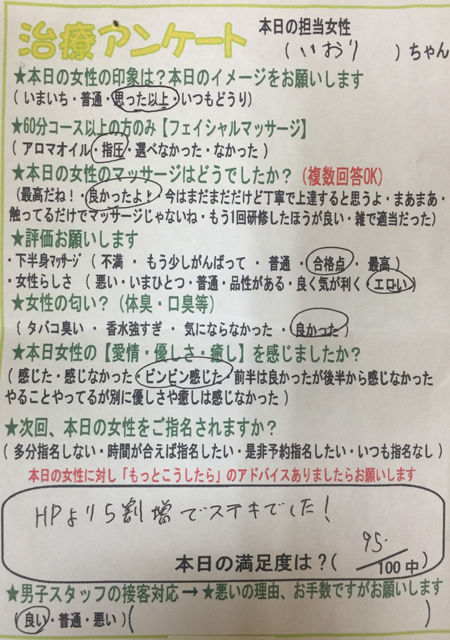 治療アンケート 本日の担当女性
( いおり )ちゃん
★本日の女性の印象は？本日のイメージをお願いします
( いまいち・普通・思った以上・いつもどうり)
★60分コース以上の方のみ【フェイシャルマッサージ】
( アロマオイル・指圧・選べなかった・なかった )
★本日の女性のマッサージはどうでしたか？ (複数回答OK)
(最高だね！・良かったよ！ 今はまだまだだけど丁寧で上達すると思うよ・まあまあ・
触ってるだけでマッサージじゃないね・もう1回研修したほうが良い・雑で適当だった)
★評価お願いします
・下半身マッサージ ( 不満 ・ もう少しがんばって ・ 普通 ・ 合格点 ・ 最高 )
・女性らしさ ( 悪い・いまひとつ・普通・品性がある・良く気が利く・エロい )
★女性の匂い？ (体臭・口臭等)
( タバコ臭い ・ 香水強すぎ ・ 気にならなかった ・ 良かった )
★本日女性の【愛情・優しさ・癒し】を感じましたか？
( 感じた・感じなかった・ビンビン感じた・前半は良かったが後半から感じなかった
やることやってるが別に優しさや癒しは感じなかった )
★次回、本日の女性をご指名されますか？
( 多分指名しない・時間が合えば指名したい・是非予約指名したい・いつも指名なし )
本日の女性に対し「もっとこうしたら」のアドバイスありましたらお願いします
HPより5割増でステキでした！
本日の満足度は？( 95/100中 )
★男子スタッフの接客対応 → ★悪いの理由、お手数ですがお願いします
( 良い・普通・悪い ) ( )